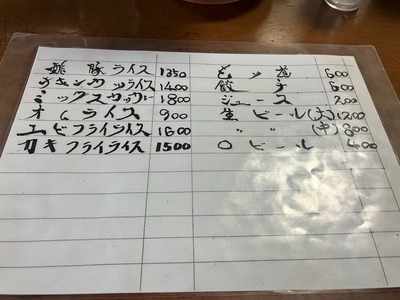 酢豚ライス 1350
チキンカツライス 1400
ミックスフライ 1800
オムライス 900
エビフライライス 1600
カキフライライス 1500
600
餃子 600
ジュース 200
生ビール(大)1200
〃 〃 (中)800
〇ビール 400